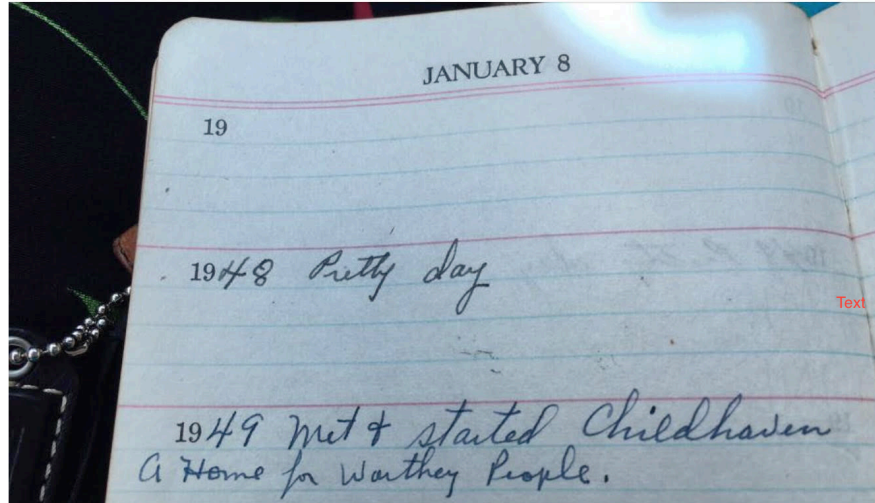 JANUARY 8
19
1948 Pretty day
Text
1949 Met & started Childhaven
A Home for Worthey People.